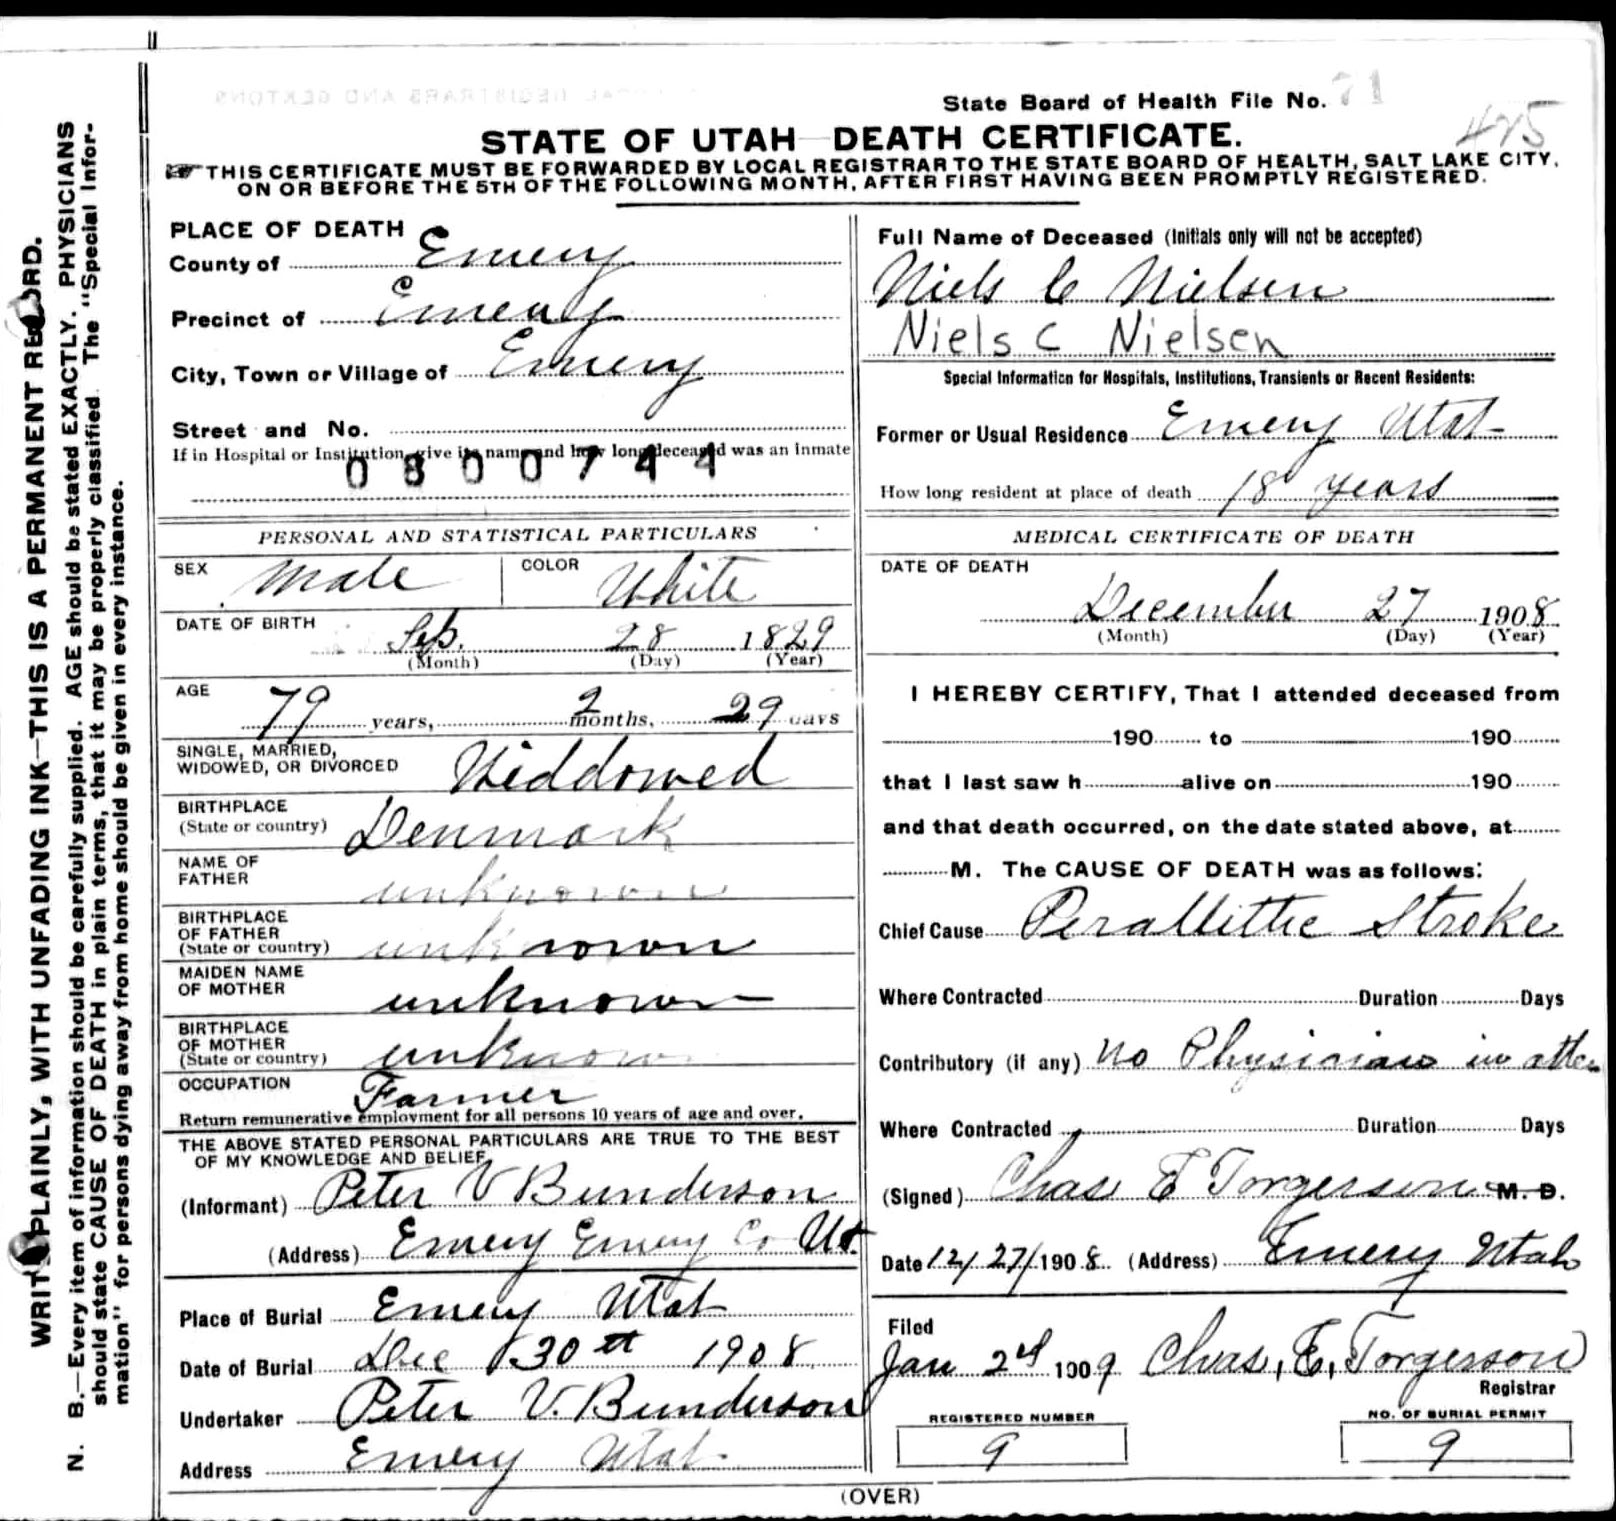 State Board of Health File No. 71
425
STATE OF UTAH DEATH CERTIFICATE.
THIS CERTIFICATE MUST BE FORWARDED BY LOCAL REGISTRAR TO THE STATE BOARD OF HEALTH, SALT LAKE CITY,
ON OR BEFORE THE 5TH OF THE FOLLOWING MONTH, AFTER FIRST HAVING BEEN PROMPTLY REGISTERED.
WRITE PLAINLY, WITH UNFADING INK—THIS IS A PERMANENT RECORD.
N. B.—Every item of information should be carefully supplied. AGE should be stated EXACTLY. PHYSICIANS
should state CAUSE OF DEATH in plain terms, that it may be properly classified. The "Special Infor-
mation" for persons dying away from home should be given in every instance.
PLACE OF DEATH
County of Emery
Precinct of Emery
City, Town or Village of Emery
Street and No.
If in Hospital or Institution, give its name and how long deceased was an inmate
0800744
PERSONAL AND STATISTICAL PARTICULARS
SEX Male COLOR White
DATE OF BIRTH
Sep. 28 1829
(Month) (Day) (Year)
AGE
79 years, 2 months, 29 days
SINGLE, MARRIED,
WIDOWED, OR DIVORCED Widdowed
BIRTHPLACE
(State or country) Denmark
NAME OF
FATHER unknown
BIRTHPLACE
OF FATHER
(State or country) unknown
MAIDEN NAME
OF MOTHER unknown
BIRTHPLACE
OF MOTHER
(State or country) unknown
OCCUPATION Farmer
Return remunerative employment for all persons 10 years of age and over.
THE ABOVE STATED PERSONAL PARTICULARS ARE TRUE TO THE BEST
OF MY KNOWLEDGE AND BELIEF
(Informant) Peter V Bunderson
(Address) Emery Emery Co Ut.
Place of Burial Emery Utah
Date of Burial Dec 30st 1908
Undertaker Peter V. Bunderson
Address Emery Utah
Full Name of Deceased (Initials only will not be accepted)
Niels C Nielsen
Niels C Nielsen
Special Information for Hospitals, Institutions, Transients or Recent Residents:
Former or Usual Residence Emery Utah
How long resident at place of death 18 years
MEDICAL CERTIFICATE OF DEATH
DATE OF DEATH
December 27 1908
(Month) (Day) (Year)
I HEREBY CERTIFY, That I attended deceased from
190 to 190
that I last saw h alive on 190
and that death occurred, on the date stated above, at
M. The CAUSE OF DEATH was as follows:
Chief Cause Perallittic Stroke
Where Contracted Duration Days
Contributory (if any) No Physician in atten
Where Contracted Duration Days
(Signed) Chas E Torgerson M. D.
Date 12/27/1908. (Address) Emery Utah
Filed
Jan 2nd 1909 Chas. E. Torgerson
Registrar
REGISTERED NUMBER
9
NO. OF BURIAL PERMIT
9
(OVER)